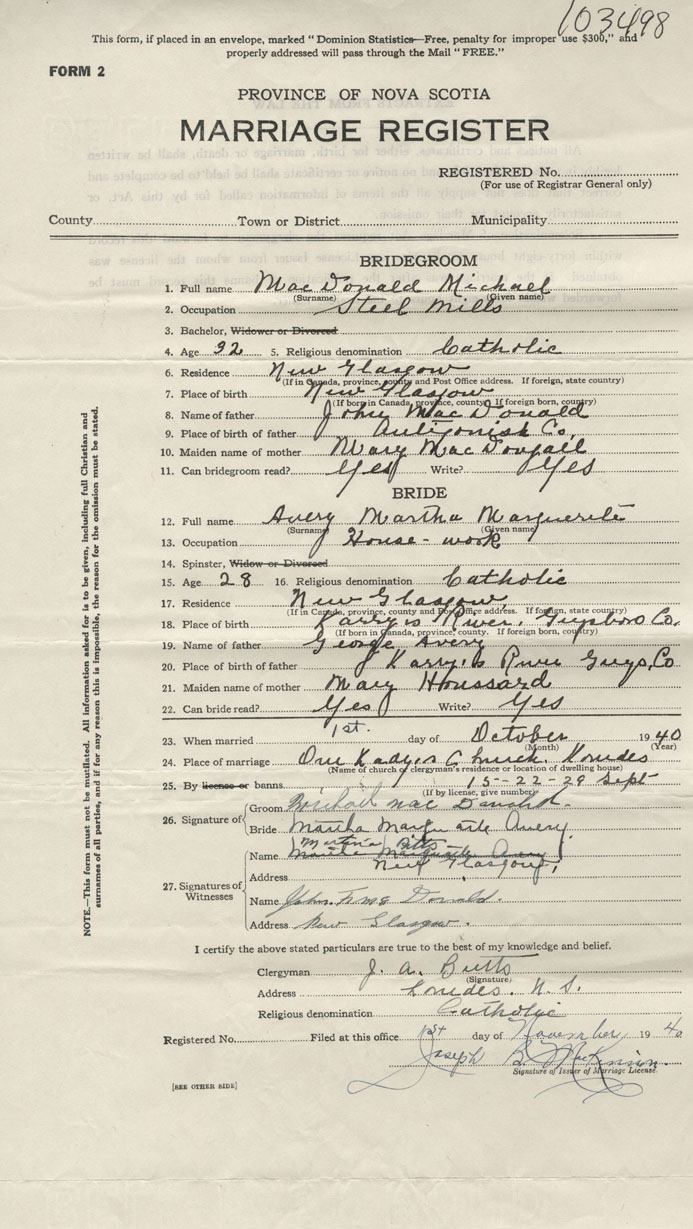 103498
This form, if placed in an envelope, marked "Dominion Statistics—Free, penalty for improper use $300," and
properly addressed will pass through the Mail "FREE."
FORM 2
PROVINCE OF NOVA SCOTIA
MARRIAGE REGISTER
REGISTERED No.
(For use of Registrar General only)
County Town or District Municipality
BRIDEGROOM
1. Full name MacDonald Michael
(Surname) (Given name)
2. Occupation Steel Mills
3. Bachelor, Widower or Divorced
4. Age 32 5. Religious denomination Catholic
6. Residence New Glasgow
(If in Canada, province, county and Post Office address. If foreign, state country)
7. Place of birth New Glasgow
(If born in Canada, province, county. If foreign born, country)
8. Name of father John MacDonald
9. Place of birth of father Antigonish Co.
10. Maiden name of mother Mary MacDougall
11. Can bridegroom read? Yes Write? Yes
BRIDE
12. Full name Avery Martha Marguerite
(Surname) (Given name)
13. Occupation House-work
14. Spinster, Widow or Divorced
15. Age 28 16. Religious denomination Catholic
17. Residence New Glasgow
(If in Canada, province, county and Post Office address. If foreign, state country)
18. Place of birth Larry's River, Guysboro Co.
(If born in Canada, province, county. If foreign born, country)
19. Name of father George Avery
20. Place of birth of father Larry's River Guys, Co
21. Maiden name of mother Mary
22. Can bride read? Yes Write? Yes
23. When married 1st. day of October 1940
(Month) (Year)
24. Place of marriage Our Lady's Church, Lourdes
(Name of church or clergyman's residence or location of dwelling house)
25. By license or banns 15-22-29 Sept
(If by license, give number)
26. Signature of Groom Michael MacDonald.
Bride Martha Marguerite Avery.
Martina Bitts
27. Signatures of Witnesses Name Martha Marguerite Avery
New Glasgow,
Address
Name John F. McDonald.
Address New Glasgow.
I certify the above stated particulars are true to the best of my knowledge and belief.
Clergyman J. A. Butts
(Signature)
Address Lourdes. N. S.
Religious denomination Catholic
Registered No. Filed at this office 1st day of November 1940
Joseph
Signature of Issuer of Marriage License.
[SEE OTHER SIDE]
NOTE.—This form must not be mutilated. All information asked for is to be given, including full Christian and
surnames of all parties, and if for any reason this is impossible, the reason for the omission must be stated.